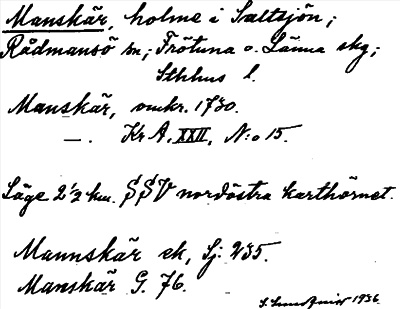 Manskär, holme i Saltsjön;
Rådmansö sn; Frötuna o. Länna skg;
Sthlms l.
Manskär, omkr. 1730.
—. Kr A. XXII, N:o 15.
Läge 2½ km. SSV nordöstra karthörnet.
Mannskär ek, Sj: 235.
Manskär G. 76.
1936